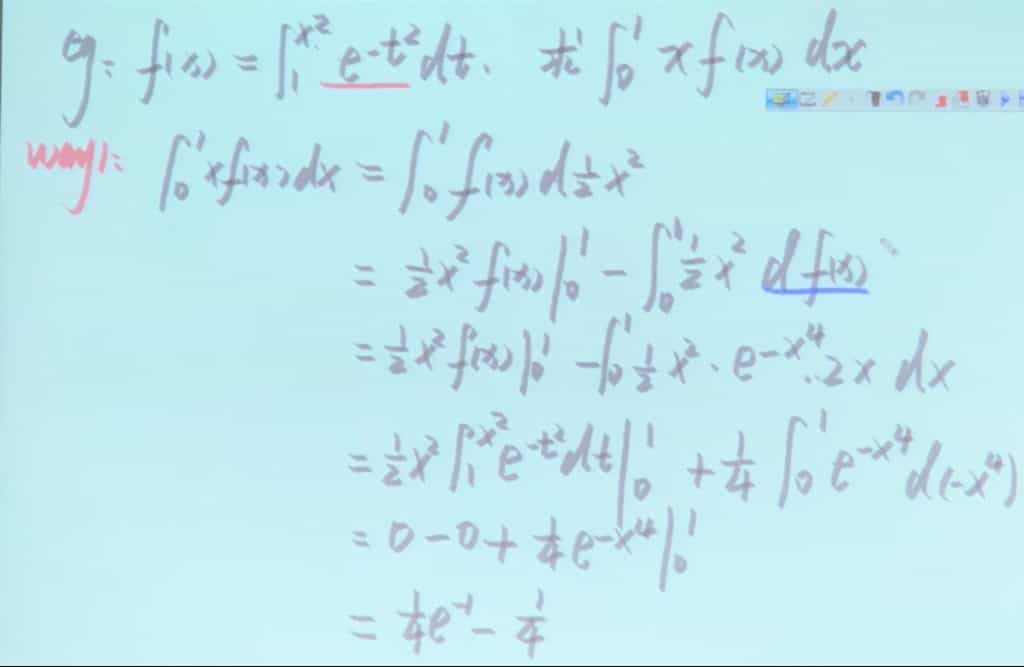 eg: f(x) = ∫₁^{x²} e^{-t²} dt. 求 ∫₀¹ x f(x) dx
way1: ∫₀¹ x f(x) dx = ∫₀¹ f(x) d ½ x²
= ½ x² f(x) |₀¹ - ∫₀¹ ½ x² d f(x)
= ½ x² f(x) |₀¹ - ∫₀¹ ½ x² · e^{-x⁴} · 2x dx
= ½ x² ∫₁^{x²} e^{-t²} dt |₀¹ + ¼ ∫₀¹ e^{-x⁴} d(-x⁴)
= 0 - 0 + ¼ e^{-x⁴} |₀¹
= ¼ e^{-1} - ¼